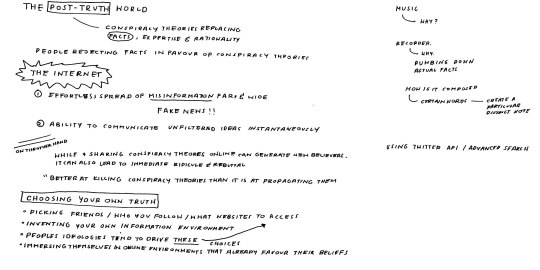 THE POST-TRUTH WORLD
CONSPIRACY THEORIES REPLACING
FACTS, EXPERTISE & RATIONALITY
PEOPLE REJECTING FACTS IN FAVOUR OF CONSPIRACY THEORIES
THE INTERNET
① EFFORTLESS SPREAD OF MISINFORMATION FAR & WIDE
FAKE NEWS!!
② ABILITY TO COMMUNICATE UNFILTERED IDEAS INSTANTANEOUSLY
ON THE OTHER HAND
WHILE & SHARING CONSPIRACY THEORIES ONLINE CAN GENERATE NEW BELIEVERS,
IT CAN ALSO LEAD TO IMMEDIATE RIDICULE & REBUTTAL
"BETTER AT KILLING CONSPIRACY THEORIES THAN IT IS AT PROPAGATING THEM
CHOOSING YOUR OWN TRUTH
• PICKING FRIENDS / WHO YOU FOLLOW / WHAT WEBSITES TO ACCESS
• INVENTING YOUR OWN INFORMATION ENVIRONMENT
• PEOPLES IDEOLOGIES TEND TO DRIVE THESE CHOICES
• IMMERSING THEMSELVES IN ONLINE ENVIRONMENTS THAT ALREADY FAVOUR THEIR BELIEFS
MUSIC
WHY?
RECORDER
WHY.
DUMBING DOWN
ACTUAL FACTS
HOW IS IT COMPOSED
CERTAIN WORDS
CREATE A
PARTICULAR
DISTINCT NOTE
USING TWITTER API / ADVANCED SEARCH